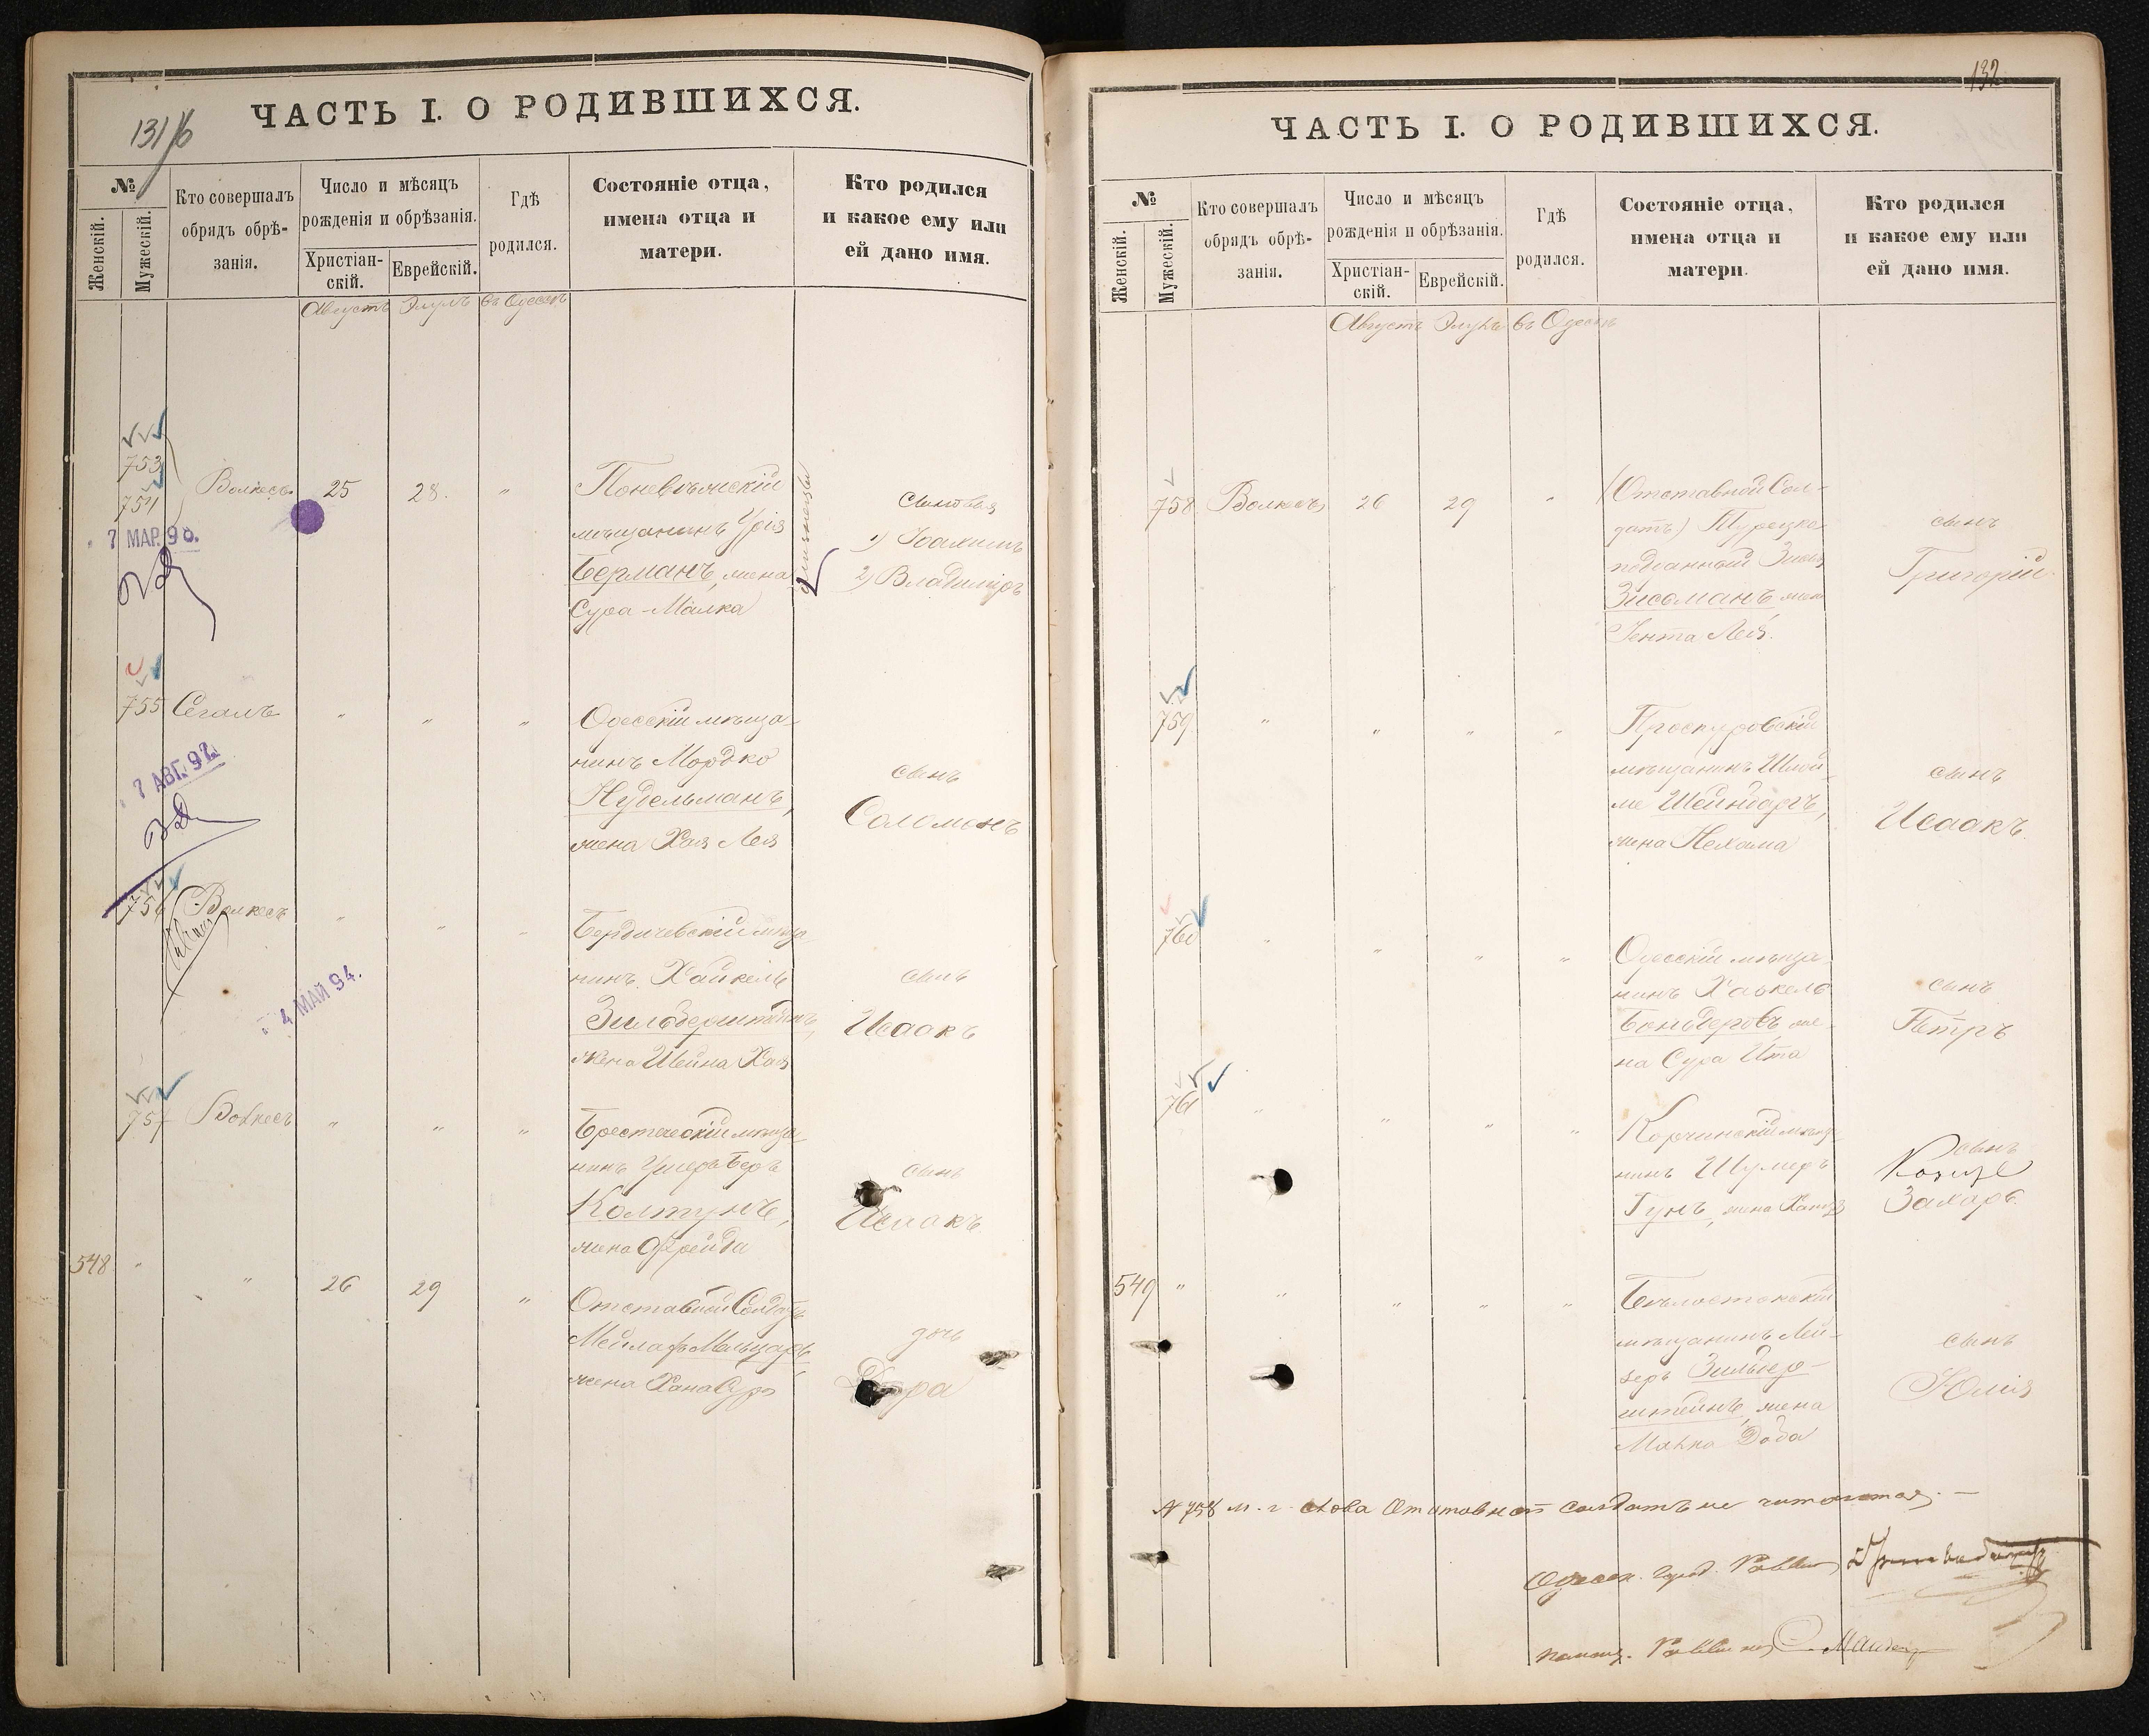 131/б
ЧАСТЬ I. О РОДИВШИХСЯ.
№
Женскій.
Мужескій.
Кто совершалъ
обрядъ обрѣ-
занія.
Число и мѣсяцъ
рожденія и обрѣзанія.
Христіан-
скій.
Еврейскій.
Гдѣ
родился.
Состояніе отца,
имена отца и
матери.
Кто родился
и какое ему или
ей дано имя.
Августъ Элулъ въ Одессѣ
753
754
Волкесъ
25
28.
"
Поневѣжскій
мѣщанинъ Урія
Берманъ, жена
Сура-Малка
близнецы
сыновья
1) Іоахимъ
2) Владиміръ
7 МАР. 98.
755
Сегалъ
"
"
"
Одесскій мѣща-
нинъ Мордко
Нудельманъ,
жена Хая Лея
сынъ
Соломонъ
7 АВГ. 92.
756
Волкесъ
"
"
"
Бердичевскій мѣща-
нинъ Хайкель
Зильберштейнъ,
жена Шейна Хая
сынъ
Исаакъ
4 МАЙ 94.
757
Волкесъ
"
"
"
Брестескій мѣща-
нинъ Ушеръ Беръ
Колтунъ,
жена Фрейда
сынъ
Исаакъ
548
"
"
26
29
"
Отставной Солдатъ
Мельцаръ,
жена Хана Сура
дочь
Дора
132
ЧАСТЬ I. О РОДИВШИХСЯ.
№
Женскій.
Мужескій.
Кто совершалъ
обрядъ обрѣ-
занія.
Число и мѣсяцъ
рожденія и обрѣзанія.
Христіан-
скій.
Еврейскій.
Гдѣ
родился.
Состояніе отца,
имена отца и
матери.
Кто родился
и какое ему или
ей дано имя.
Августъ Элулъ въ Одессѣ
758
Волкесъ
26
29
"
(Отставной Сол-
датъ) Турецко
подданный
Зисманъ жена
Іента Лея.
сынъ
Григорій
759
"
"
"
"
Проскуровскій
мѣщанинъ Шлой-
ме
жена Нехама
сынъ
Исаакъ.
760
"
"
"
"
Одесскій мѣща-
нинъ Хаскель
Бондеровъ же-
на Сура Ита
сынъ
Петръ
761
"
"
"
"
мѣща-
нинъ Шумеръ
Гунъ, жена
сынъ
Захаръ
549
"
"
"
"
"
Бѣлостокскій
мѣщанинъ Лей-
зеръ Зильбер-
штейнъ, жена
Малка Доба
сынъ
Юлія
№ 758 м. г. слова Отставной солдатъ не читается. —
Одесск. город. Раввинъ
помощ. Раввина